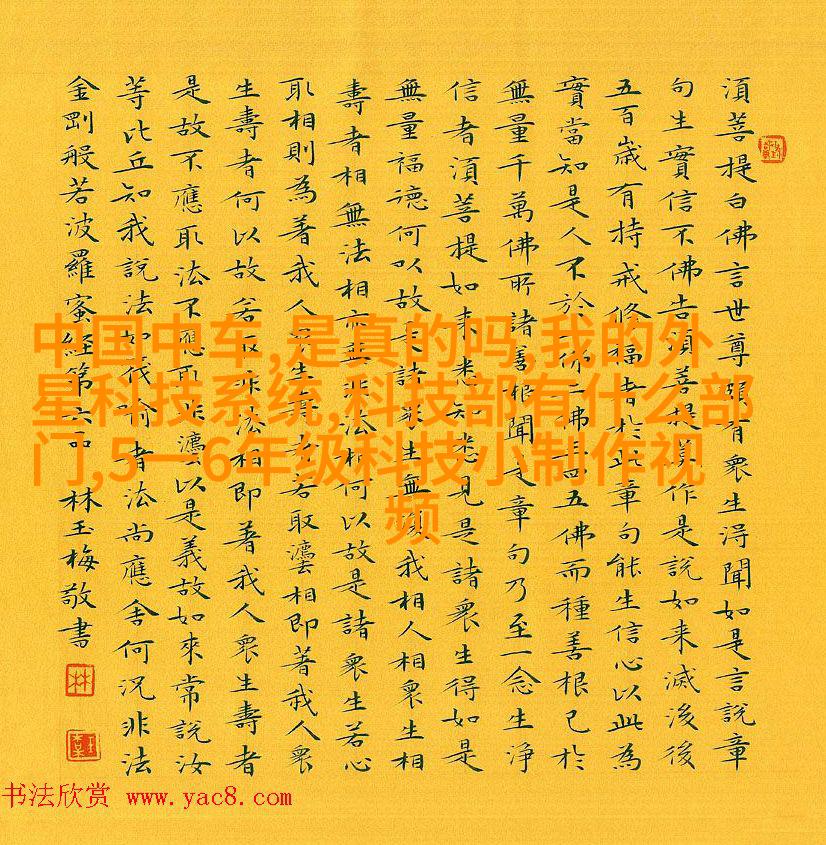 須菩提白佛言世尊頗有衆生淂聞如是言說章
句生實信不佛告須菩提莫作是說如来滅後後
五百歲有持戒修福者於此章句能生信心以此為
實當知是人不於一佛二佛三四五佛而種善根已於
無量千萬佛所諸善根聞是章句乃至一念生淨
信者須菩提如来悉知悉見是諸衆生得如是
無量福德何以故是諸衆生無復我相人相衆生相
壽者相無法相亦無非法相何以故是諸衆生若心
取相則為著我人衆生壽者若取灋相即著我人衆
生壽者何以故若取非法相即著我人衆生壽者
是故不應取法不應取非灋以是義故如來常說汝
等比丘知我說法如筏喻者法尚應舍何況非法
金剛般若波羅蜜經第六品 林玉梅敬書
林
中国中车,是真的吗,我的外
星科技系统,科技部有什么部
门,5一6年级科技小制作视
频
书法欣赏 www.yac8.com